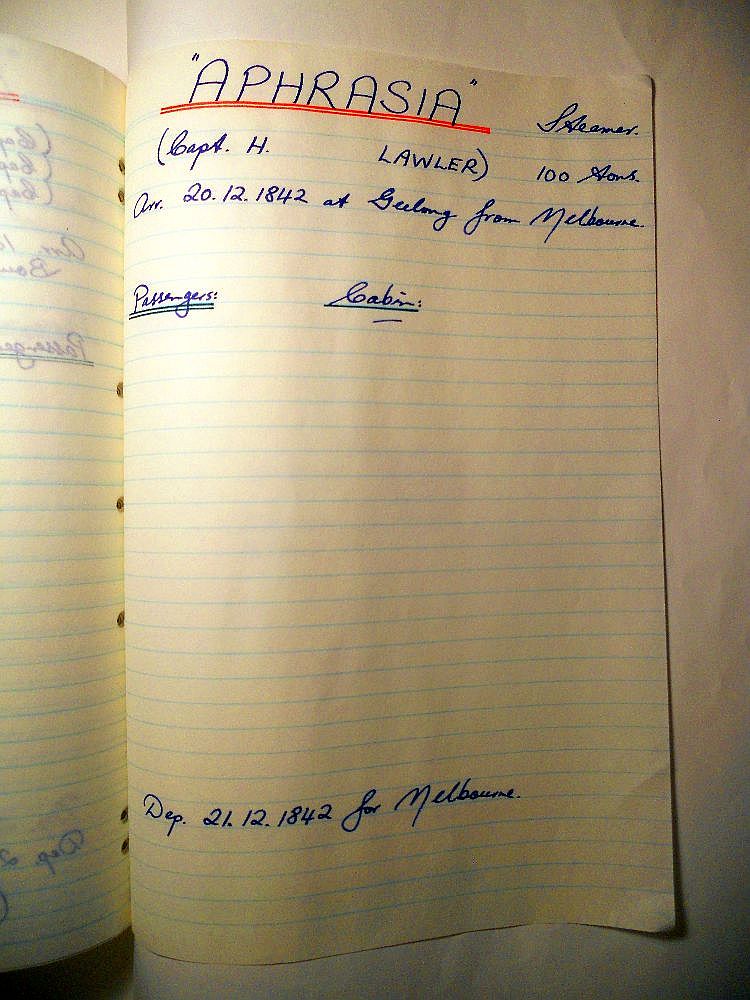 "APHRASIA" Steamer.
(Capt. H. LAWLER) 100 tons.
Arr. 20.12.1842 at Geelong from Melbourne.
Passengers: Cabin:
Dep. 21.12.1842 for Melbourne.